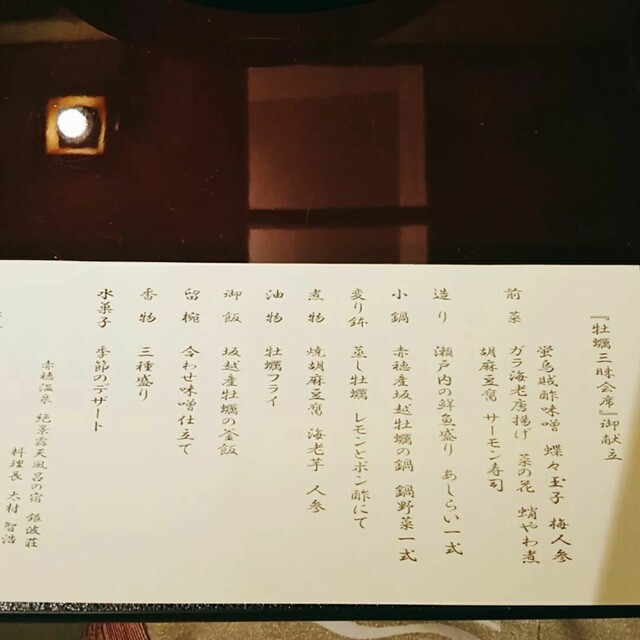 『牡蠣三昧会席』御献立
蛍烏賊酢味噌 蝶々玉子 梅人参
前菜 ガラ海老唐揚げ 菜の花 蛸やわ煮
胡麻豆腐 サーモン寿司
造り 瀬戸内の鮮魚盛り あしらい一式
小鍋 赤穂産坂越牡蠣の鍋 鍋野菜一式
変り鉢 蒸し牡蠣 レモンとポン酢にて
煮物 焼胡麻豆腐 海老芋 人参
油物 牡蠣フライ
御飯 坂越産牡蠣の釜飯
留椀 合わせ味噌仕立て
香物 三種盛り
水菓子 季節のデザート
赤穂温泉 絶景露天風呂の宿 銀波荘
料理長 大村 智浩